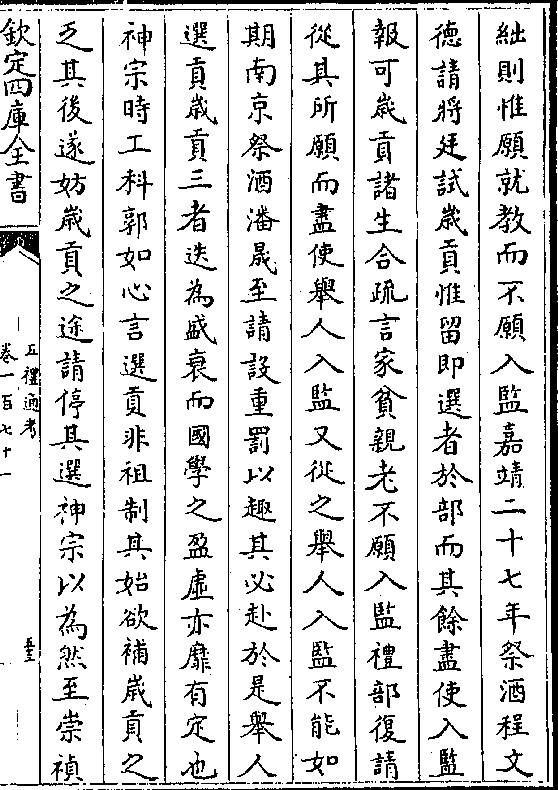 絀則惟願就教而不願入監嘉靖二十七年祭酒程文
德請將廷試歲貢惟留即選者於部而其餘盡使入監
報可歲貢諸生合疏言家貧親老不願入監禮部復請
從其所願而盡使舉人入監又從之舉人入監不能如
期南京祭酒潘晟至請設重罰以趣其必赴於是舉人
選貢歲貢三者迭為盛衰而國學之盈虛亦靡有定也
神宗時工科郭如心言選貢非祖制其始欲補歲貢之
乏其後遂妨歲貢之途請停其選神宗以為然至崇禎
欽定四庫全書
五禮通考
卷一百七十一